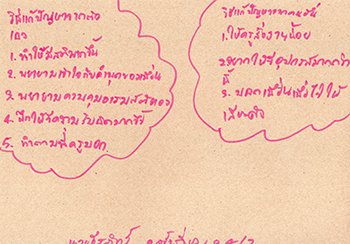 วิธีแก้ปัญหาจากตัว
เอง
1. ทำให้มีสติมากขึ้น
2. พยายามเข้าใจกับคำพูดของคนอื่น
3. พยายามควบคุมอารมณ์ตัวเอง
4. ฝึกให้มีความรับผิดชอบ
5. ทำตามที่ครูบอก
วิธีแก้ปัญหาจากคนอื่น
1. ให้ครูสั่งงานน้อย
2. อยากให้มีอุปกรณ์มากกว่า
นี้
3. บอกเพื่อนว่าไม่ให้
เสียงดัง